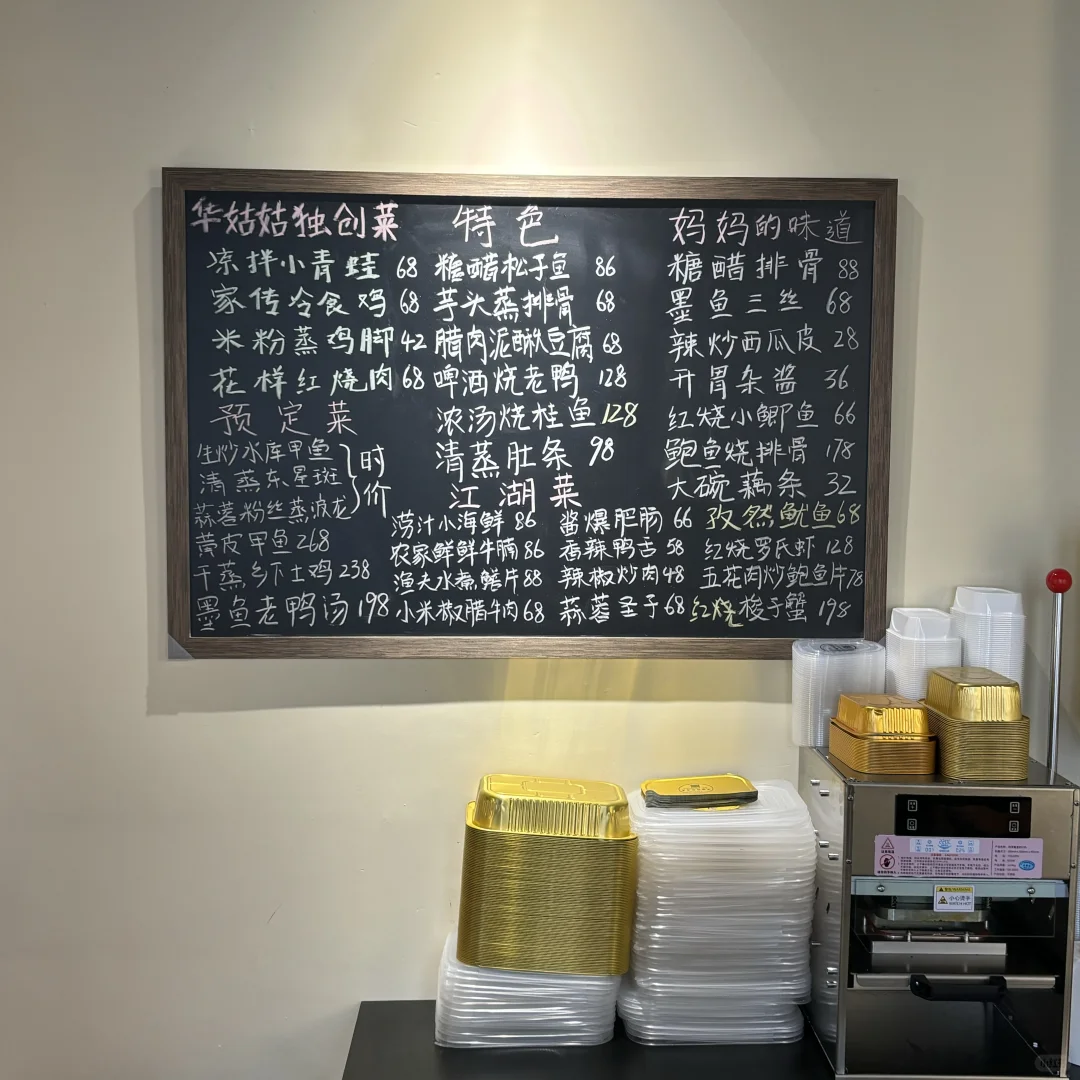 华姑姑独创菜
凉拌小青蛙 68
家传冷食鸡 68
米粉蒸鸡脚 42
花样红烧肉 68
预定菜
生炒水库甲鱼
清蒸东星斑
蒜蓉粉丝蒸波龙
时价
黄皮甲鱼268
干蒸乡下土鸡238
墨鱼老鸭汤198
特色
糖醋松子鱼 86
芋头蒸排骨 68
腊肉泥鳅豆腐 68
啤酒烧老鸭 128
浓汤烧桂鱼 128
清蒸肚条 98
江湖菜
捞汁小海鲜 86
农家鲜鲜牛腩 86
渔夫水煮鳝片 88
小米椒腊牛肉 68
酱爆肥肠 66
香辣鸭舌 58
辣椒炒肉 48
蒜蓉圣子 68
妈妈的味道
糖醋排骨 88
墨鱼三丝 68
辣炒西瓜皮 28
开胃杂酱 36
红烧小鲫鱼 66
鲍鱼烧排骨 178
大碗藕条 32
孜然鱿鱼68
红烧罗氏虾 128
五花肉炒鲍鱼片78
红烧梭子蟹 198
小心烫手